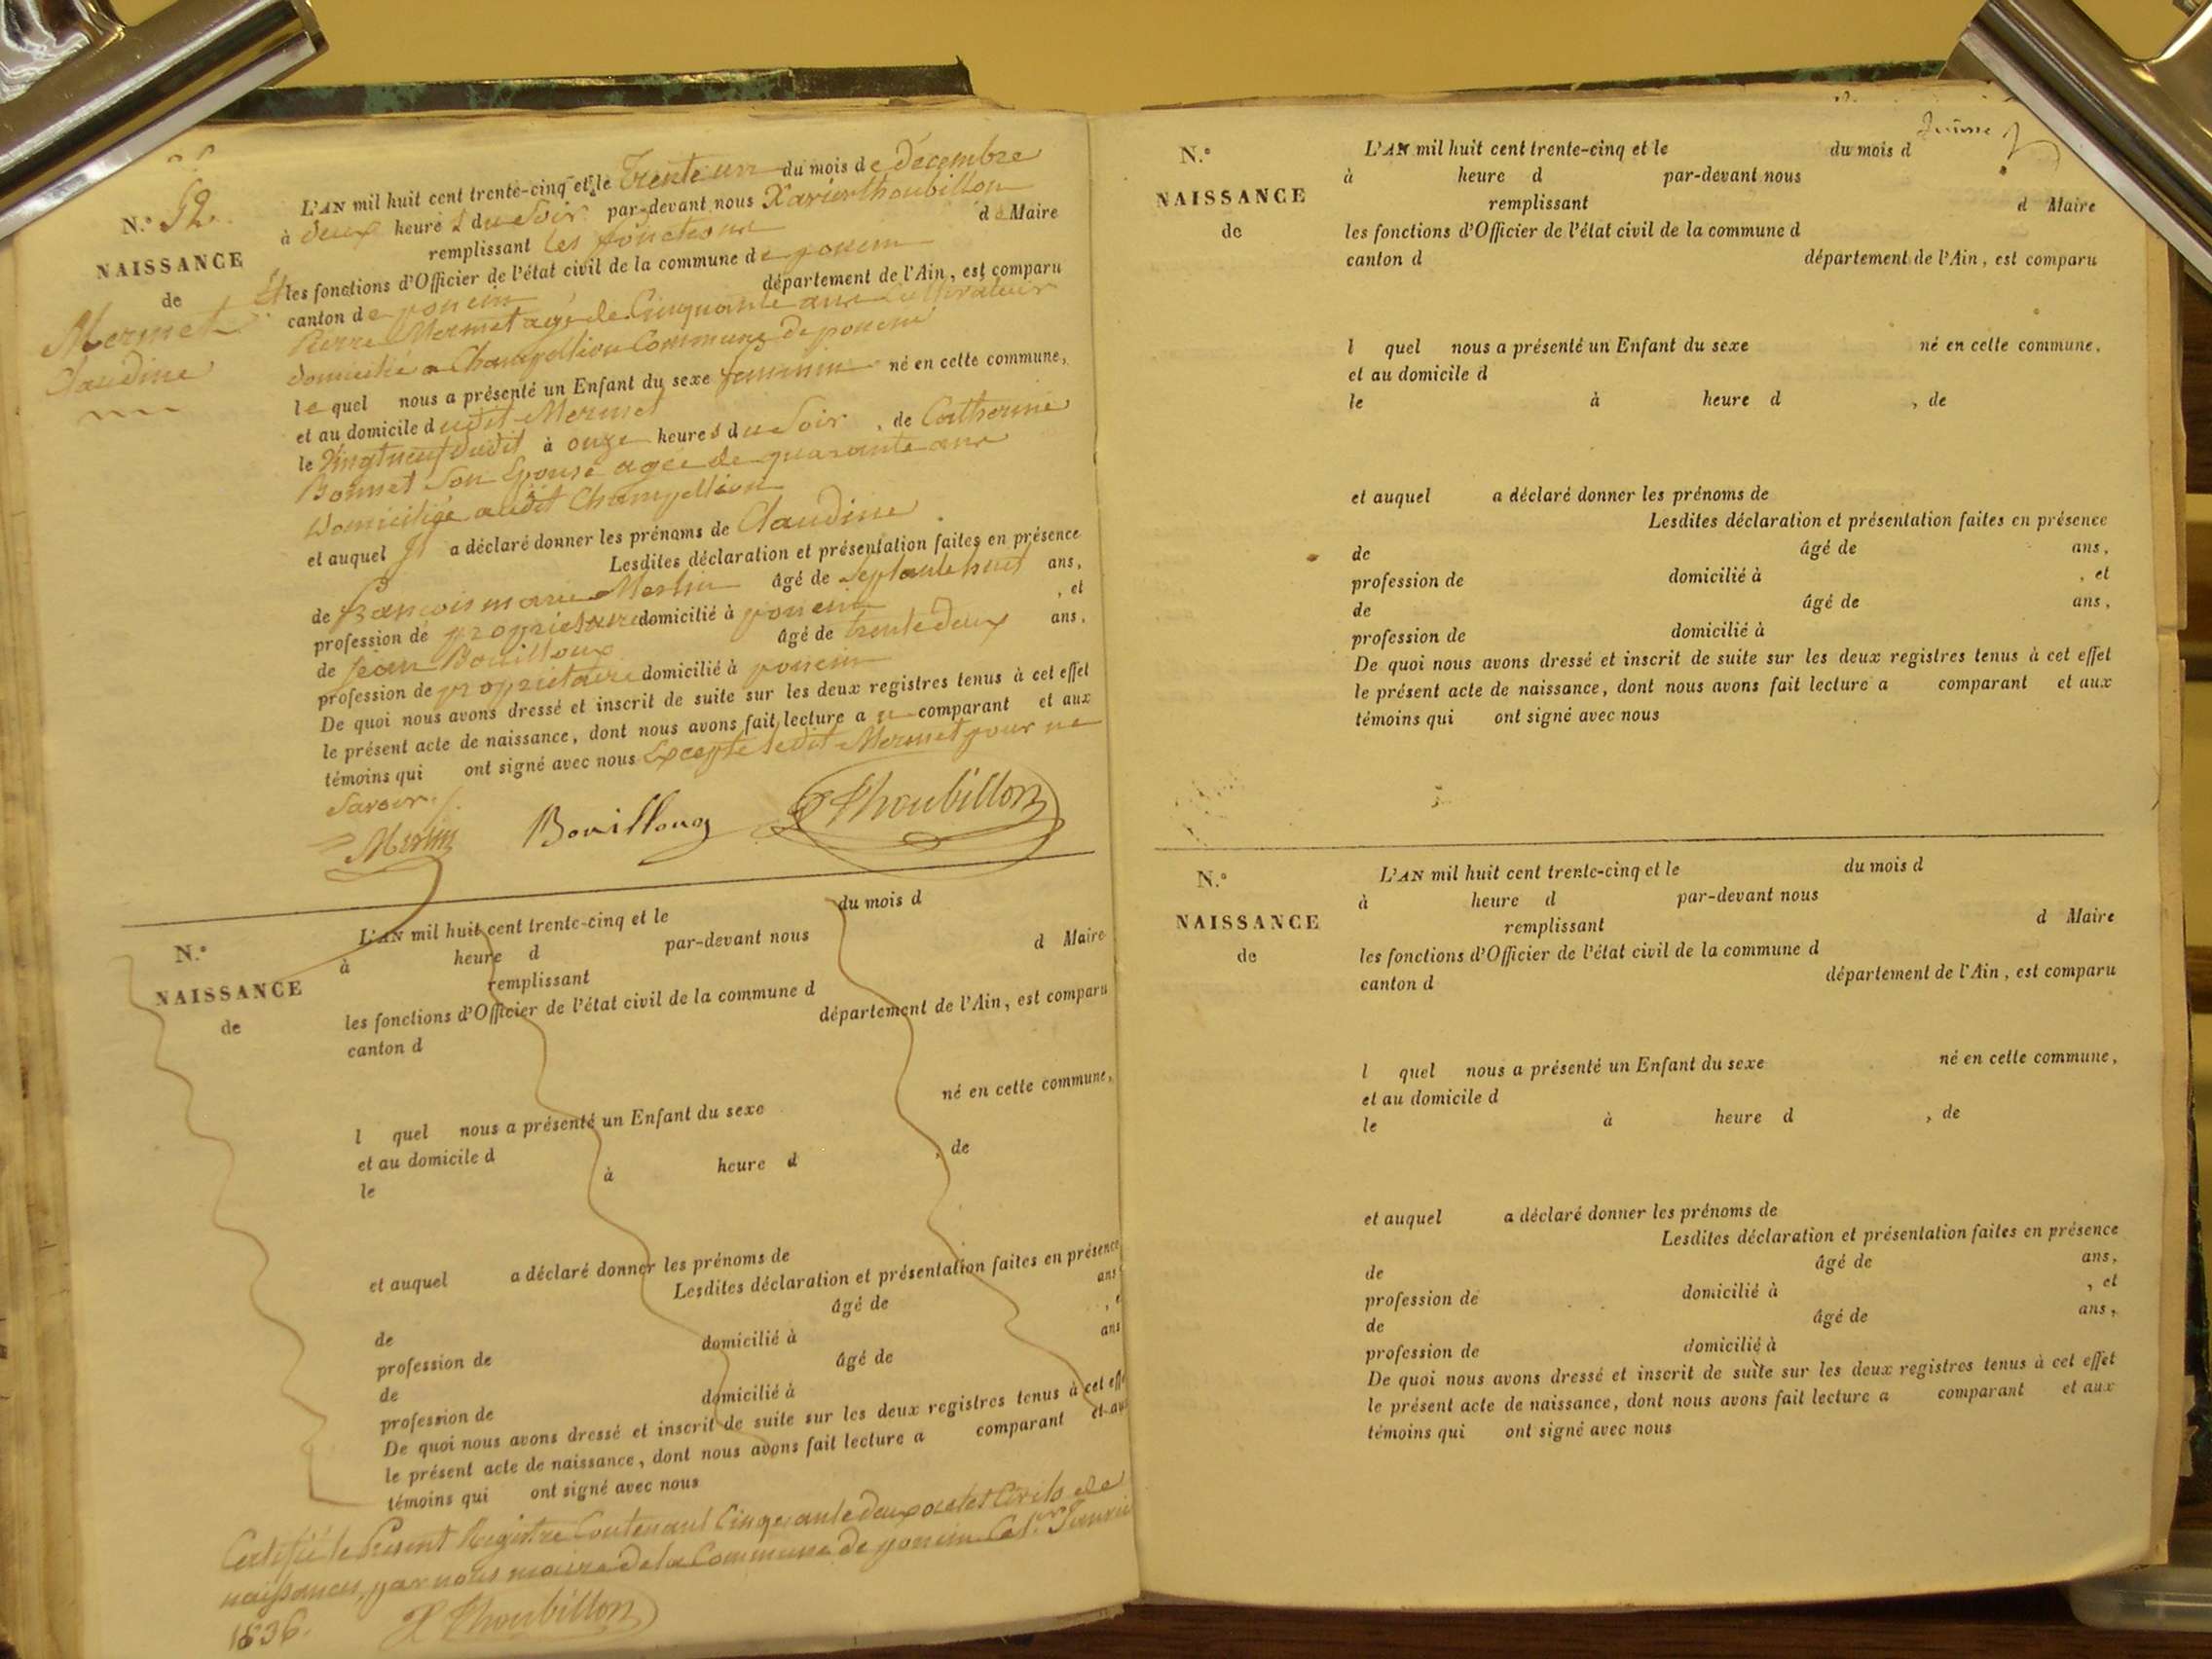 N.° 52.
NAISSANCE
de
Mermet
Claudine
L'AN mil huit cent trente-cinq et le Trente un du mois de décembre
à deux heures du Soir par-devant nous Xavier Thoubillon
remplissant les fonctions d Maire
Et les fonctions d'Officier de l'état civil de la commune de poncin
canton de poncin département de l'Ain, est comparu
Pierre Mermet agé de Cinquante ans Cultivateur
domicilié a Champeillion Commune de poncin
le quel nous a présenté un Enfant du sexe feminin né en cette commune,
et au domicile dudit Mermet
le Vingtneuf dudit à onze heures du Soir, de Catherine
Bonnet Son Epouse agée de quarante ans
Domiciliée audit Champeillion
et auquel il a déclaré donner les prénoms de Claudine
Lesdites déclaration et présentation faites en présence
de françois marie Merlin âgé de Septante huit ans,
profession de proprietaire domicilié à poncin, et
de Jean Bouilloux âgé de trente deux ans,
profession de proprietaire domicilié à poncin
De quoi nous avons dressé et inscrit de suite sur les deux registres tenus à cet effet
le présent acte de naissance, dont nous avons fait lecture au comparant et aux
témoins qui ont signé avec nous Excepté ledit Mermet pour ne
Savoir.
Merlin Bouilloux X Thoubillon
N.°
NAISSANCE
de
L'AN mil huit cent trente-cinq et le du mois d
à heure d par-devant nous
remplissant d Maire
les fonctions d'Officier de l'état civil de la commune d
canton d département de l'Ain, est comparu
l quel nous a présenté un Enfant du sexe né en cette commune,
et au domicile d
le à heure d , de
et auquel a déclaré donner les prénoms de
Lesdites déclaration et présentation faites en présence
de âgé de ans
profession de domicilié à , e
de âgé de ans
profession de domicilié à
De quoi nous avons dressé et inscrit de suite sur les deux registres tenus à cet eff
le présent acte de naissance, dont nous avons fait lecture a comparant et au
témoins qui ont signé avec nous
Certifié le Présent Registre Contenant Cinquante deux actes Civils de
naissances, par nous maire de la Commune de poncin Ce 1.er Janvier
1836. X Thoubillon
N.°
NAISSANCE
de
L'AN mil huit cent trente-cinq et le du mois d
à heure d par-devant nous
remplissant d Maire
les fonctions d'Officier de l'état civil de la commune d
canton d département de l'Ain, est comparu
l quel nous a présenté un Enfant du sexe né en cette commune,
et au domicile d
le à heure d , de
et auquel a déclaré donner les prénoms de
Lesdites déclaration et présentation faites en présence
de âgé de ans,
profession de domicilié à , et
de âgé de ans,
profession de domicilié à
De quoi nous avons dressé et inscrit de suite sur les deux registres tenus à cet effet
le présent acte de naissance, dont nous avons fait lecture a comparant et aux
témoins qui ont signé avec nous
N.°
NAISSANCE
de
L'AN mil huit cent trente-cinq et le du mois d
à heure d par-devant nous
remplissant d Maire
les fonctions d'Officier de l'état civil de la commune d
canton d département de l'Ain, est comparu
l quel nous a présenté un Enfant du sexe né en cette commune,
et au domicile d
le à heure d , de
et auquel a déclaré donner les prénoms de
Lesdites déclaration et présentation faites en présence
de âgé de ans,
profession de domicilié à , et
de âgé de ans,
profession de domicilié à
De quoi nous avons dressé et inscrit de suite sur les deux registres tenus à cet effet
le présent acte de naissance, dont nous avons fait lecture a comparant et aux
témoins qui ont signé avec nous